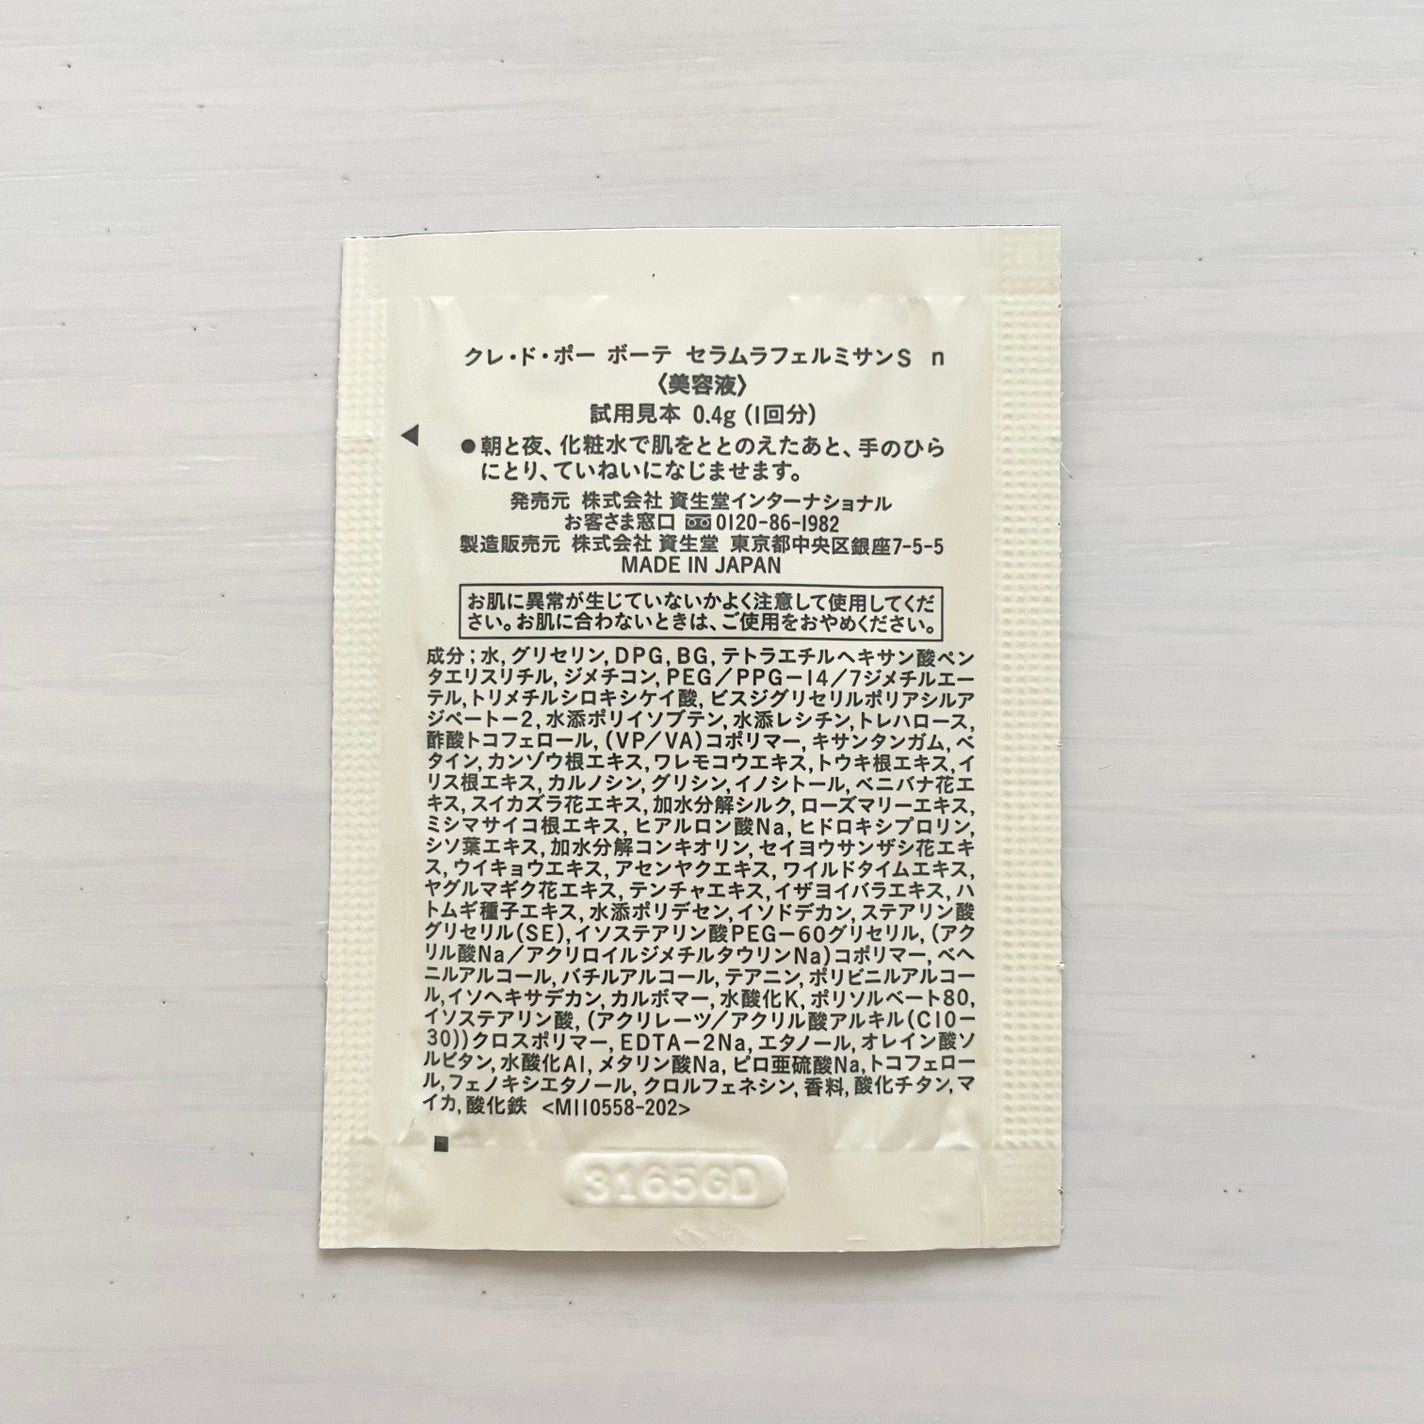 クレ・ド・ポー ボーテ セラムラフェルミサンS n
〈美容液〉
試用見本 0.4g (1回分)
●朝と夜、化粧水で肌をととのえたあと、手のひら
にとり、ていねいになじませます。
発売元 株式会社 資生堂インターナショナル
お客さま窓口 0120-86-1982
製造販売元 株式会社 資生堂 東京都中央区銀座7-5-5
MADE IN JAPAN
お肌に異常が生じていないかよく注意して使用してくだ
さい。お肌に合わないときは、ご使用をおやめください。
成分;水,グリセリン,DPG,BG,テトラエチルヘキサン酸ペン
タエリスリチル,ジメチコン,PEG/PPG-14/7ジメチルエー
テル,トリメチルシロキシケイ酸,ビスジグリセリルポリアシルア
ジペート-2,水添ポリイソブテン,水添レシチン,トレハロース,
酢酸トコフェロール,(VP/VA)コポリマー,キサンタンガム,ベ
タイン,カンゾウ根エキス,ワレモコウエキス,トウキ根エキス,イ
リス根エキス,カルノシン,グリシン,イノシトール,ベニバナ花エ
キス,スイカズラ花エキス,加水分解シルク,ローズマリーエキス,
ミシマサイコ根エキス,ヒアルロン酸Na,ヒドロキシプロリン,
シソ葉エキス,加水分解コンキオリン,セイヨウサンザシ花エキ
ス,ウイキョウエキス,アセンヤクエキス,ワイルドタイムエキス,
ヤグルマギク花エキス,テンチャエキス,イザヨイバラエキス,ハ
トムギ種子エキス,水添ポリデセン,イソドデカン,ステアリン酸
グリセリル(SE),イソステアリン酸PEG-60グリセリル,(アク
リル酸Na/アクリロイルジメチルタウリンNa)コポリマー,ベヘ
ニルアルコール,バチルアルコール,テアニン,ポリビニルアルコー
ル,イソヘキサデカン,カルボマー,水酸化K,ポリソルベート80,
イソステアリン酸,(アクリレーツ/アクリル酸アルキル(C10-
30))クロスポリマー,EDTA-2Na,エタノール,オレイン酸ソ
ルビタン,水酸化Al,メタリン酸Na,ピロ亜硫酸Na,トコフェロー
ル,フェノキシエタノール,クロルフェネシン,香料,酸化チタン,マ
イカ,酸化鉄 <M110558-202>
3165GD